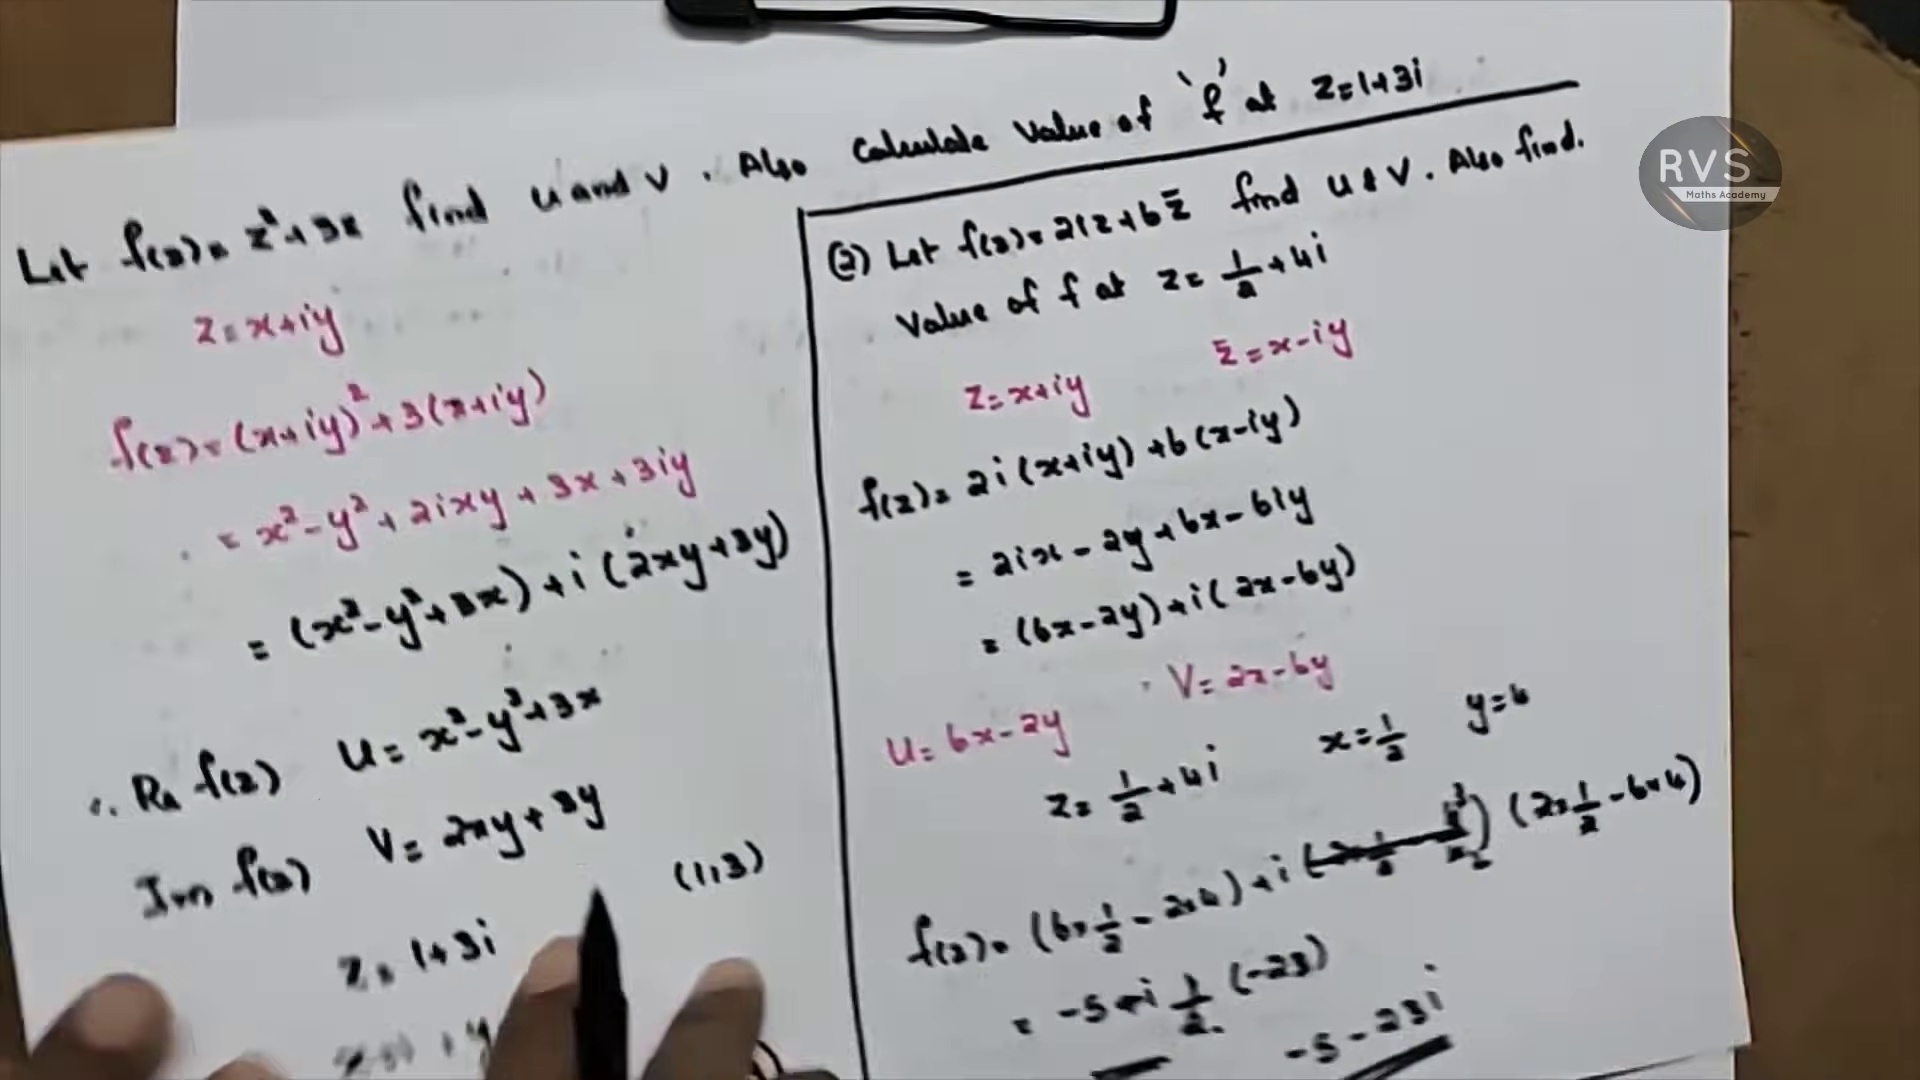 Let f(z) = z² + 3z find u and v. Also calculate value of 'f' at z=1+3i
z = x+iy
f(z) = (x+iy)² + 3(x+iy)
= x² - y² + 2ixy + 3x + 3iy
= (x² - y² + 3x) + i (2xy + 3y)
∴ Re f(z) u = x² - y² + 3x
Im f(z) v = 2xy + 3y
z = 1+3i (1,3)
(2) Let f(z) = 2iz + 6z̄ find u & v. Also find.
Value of f at z = 1/2 + 4i
z = x+iy z̄ = x-iy
f(z) = 2i (x+iy) + 6 (x-iy)
= 2ix - 2y + 6x - 6iy
= (6x - 2y) + i (2x - 6y)
u = 6x - 2y v = 2x - 6y
z = 1/2 + 4i x = 1/2 y = 4
f(z) = (6×1/2 - 2×4) + i (2×1/2 - 6×4)
= -5 + i 1/2 (-23)
-5 - 23i
RVS
Maths Academy